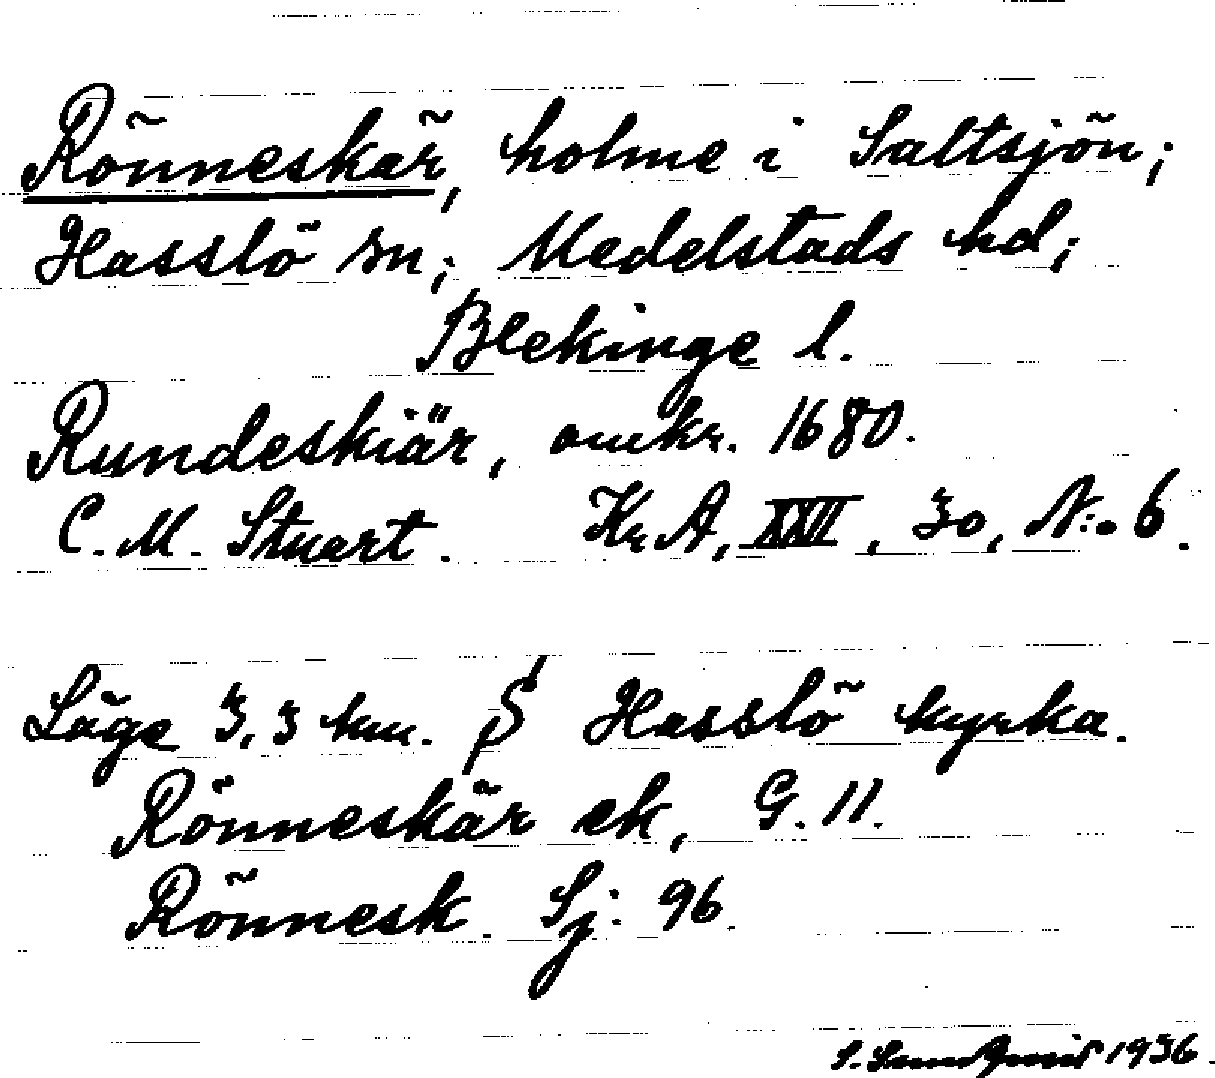 Rönneskär, holme i Saltsjön;
Hasslö sn; Medelstads hd;
Blekinge l.
Rundeskiär, omkr. 1680.
C. M. Stuart. KrA, XXVI, 30, N:o 6.
Läge 3,3 km. S Hasslö kyrka.
Rönneskär ek, G. 11.
Rönnesk. Sj: 96.
S. 1936.